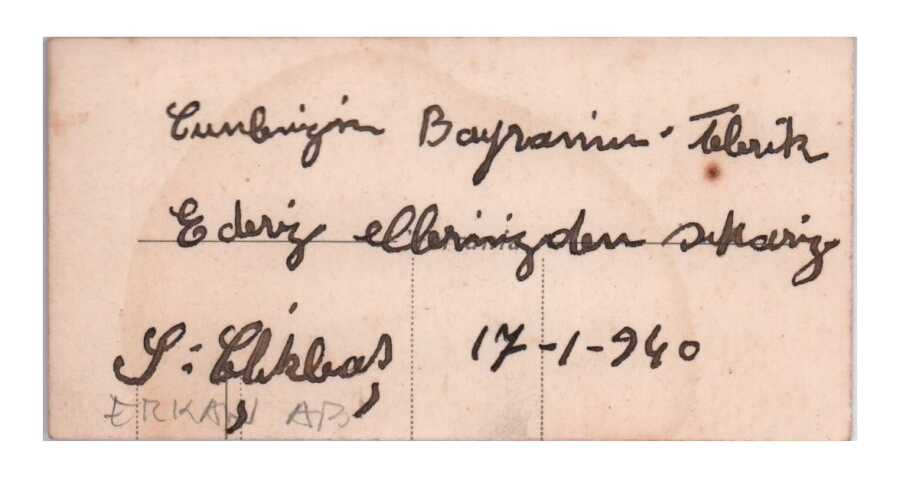 Cumlenizin Bayramını Tebrik
Ederiz ellerinizden sıkarız
S: Çelikbaş 17-1-940
ERKAN AB